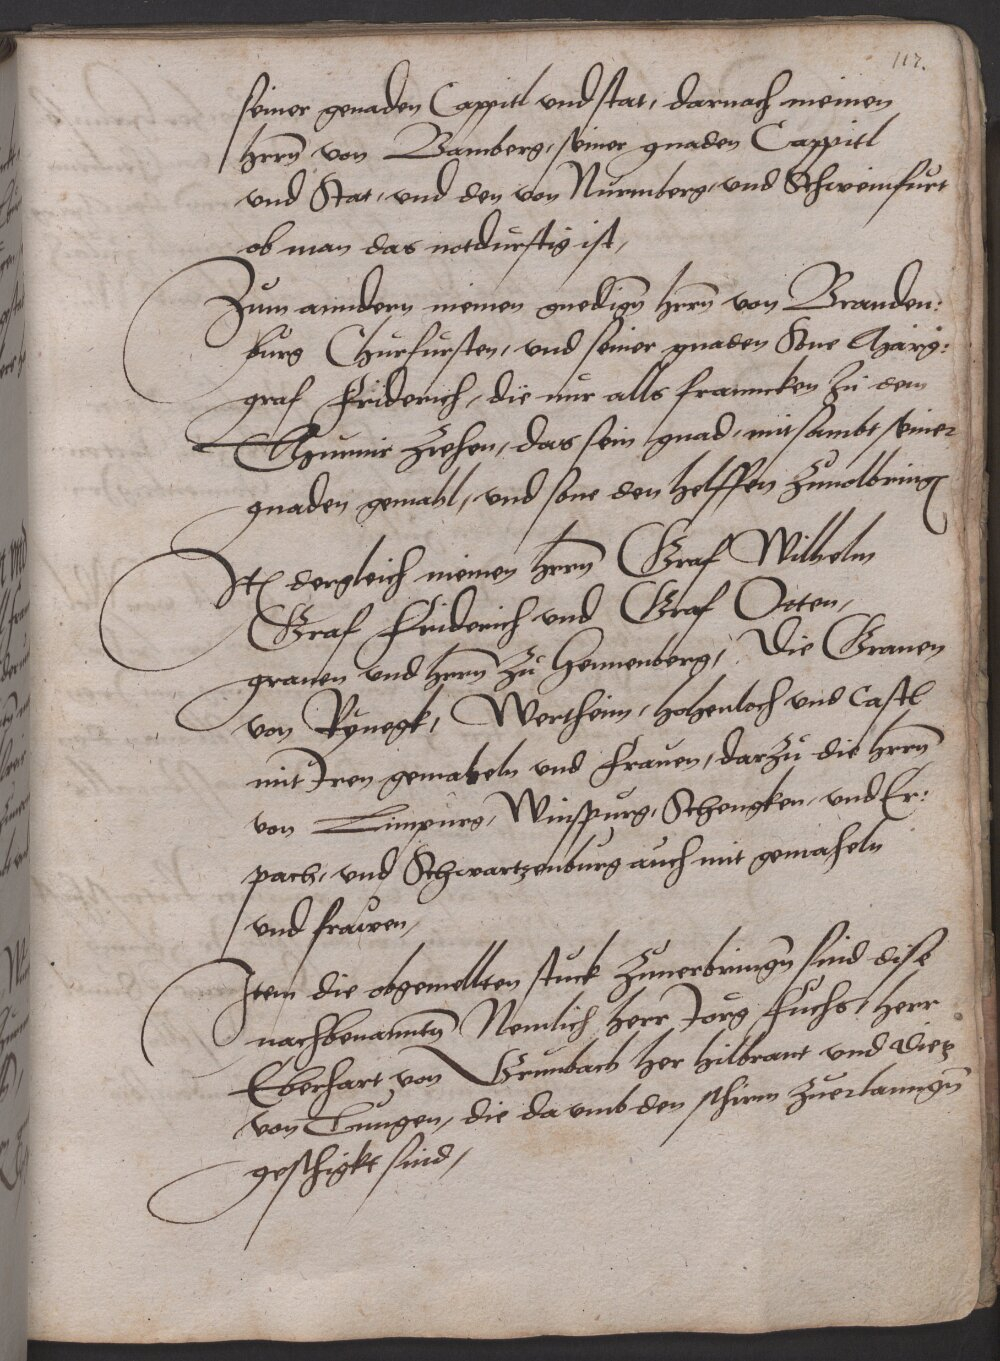 117.
seiner genaden Cappitl vnd stat, darnach meinen
hrrn von Bamberg, seiner gnaden Cappitl
vnd Stat, vnd den von Nurmberg, vnd Schweinfurt
ob man das notdurftig ist,
Zum anndern meinen gnedign hrrn von Branden:
burg Churfursten, vnd seiner gnaden Sone Marg:
graf Friderich, die nur alls franncken zu dem
Thurnir ziehen, das sein gnad, mit sambt seiner
gnaden gemahl, vnd sone den helffen zuuolbring
It dergleich meinen hrrn Graf Wilhelm
Graf Friderich vnd Graf Otten,
grauen vnd hrrn zu Hennenberg, Die Grauen
von Rynegk, Wertheim, hohenloch vnd Castl
mit Iren gemaheln vnd Frauen, darzu die hrrn
von Limpurg, Winspurg, Schengken, vnd Er:
pach, vnd Schwartzenburg auch mit gemaheln
vnd frawen,
Item die obgemellten stuck zuuerbringn sind dise
nachbenanntn Nemlich herr Jorg Fuchs, herr
Eberhart von Grunbach her hilbrant vnd Dietz
von Tungen, die da vmb den schirm zuerlanngn
geschigkt sind,